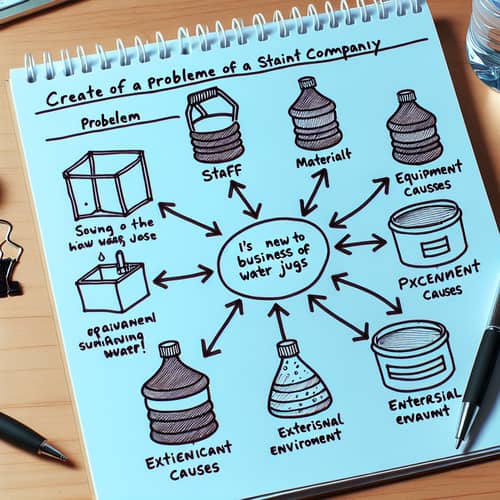 Create of a probleme of a Staint Company
Probelem
Staff
Materialt
Equipment
causses
Soung o the
how wasş Jose
I's new to
business of
water jugs
Pxcenment
causes
opavanen
Extienicant
causes
Extersnal
enviroment
Entersial
envaumt